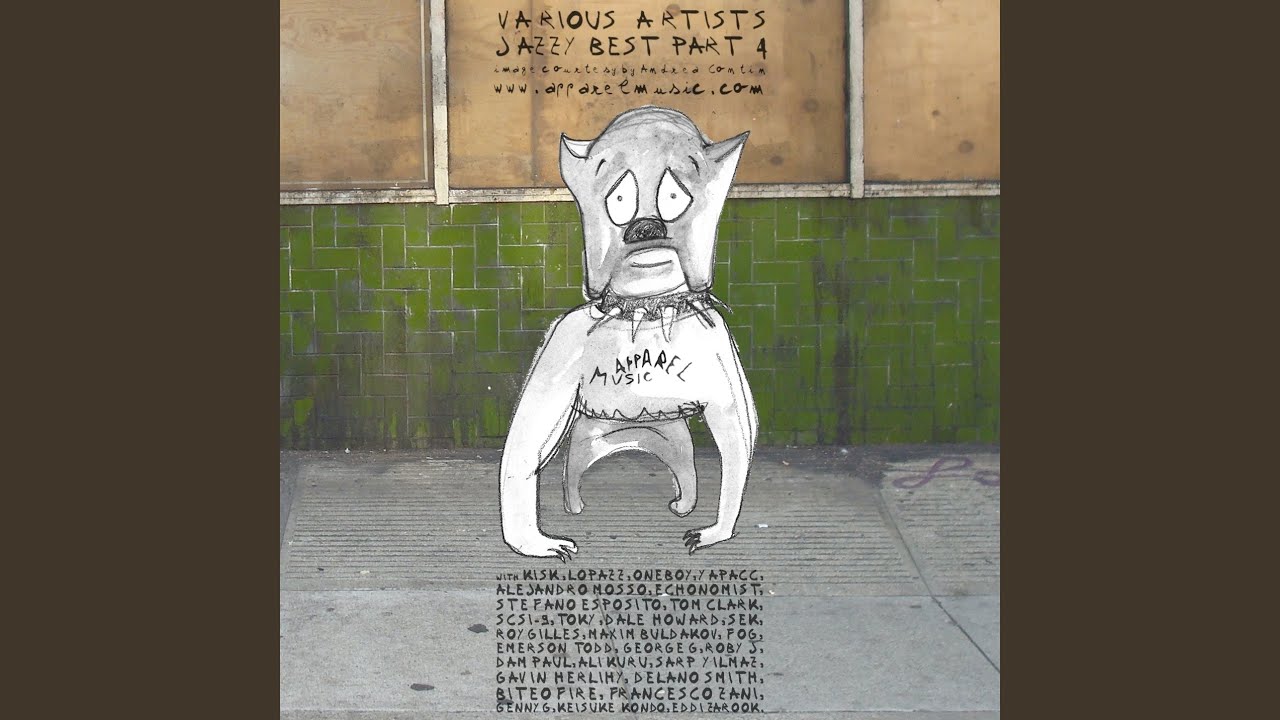 VARIOUS ARTISTS
JAZZY BEST PART 4
image courtesy by Andrea Contin
www.apparelmusic.com
APPAREL
MUSIC
WITH KISK, LOPAZZ, ONEBOY, YAPACC,
ALEJANDRO MOSSO, ECHONOMIST,
STEFANO ESPOSITO, TOM CLARK,
SCSI-9, TOKY, DALE HOWARD, SEK,
ROY GILLES, MAXIM BULDAKOV, FOG,
EMERSON TODD, GEORGE G, ROBY J,
DAM PAUL, ALI KURU, SARP YILMAZ,
GAVIN HERLIHY, DELANO SMITH,
BITEOFIRE, FRANCESCO ZANI,
GENNY G, KEISUKE KONDO, EDDI ZAROOK.